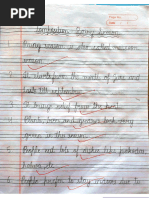 Contribution - Rainy Season
1. Rainy season is also called monsoon season.
2. It starts from the month of June and lasts till september.
3. It brings relief from the heat.
4. Plants, trees and grasses look very green in this season.
5. People eat lots of dishes like pakodas,
6. People prefer to stay indoors due to